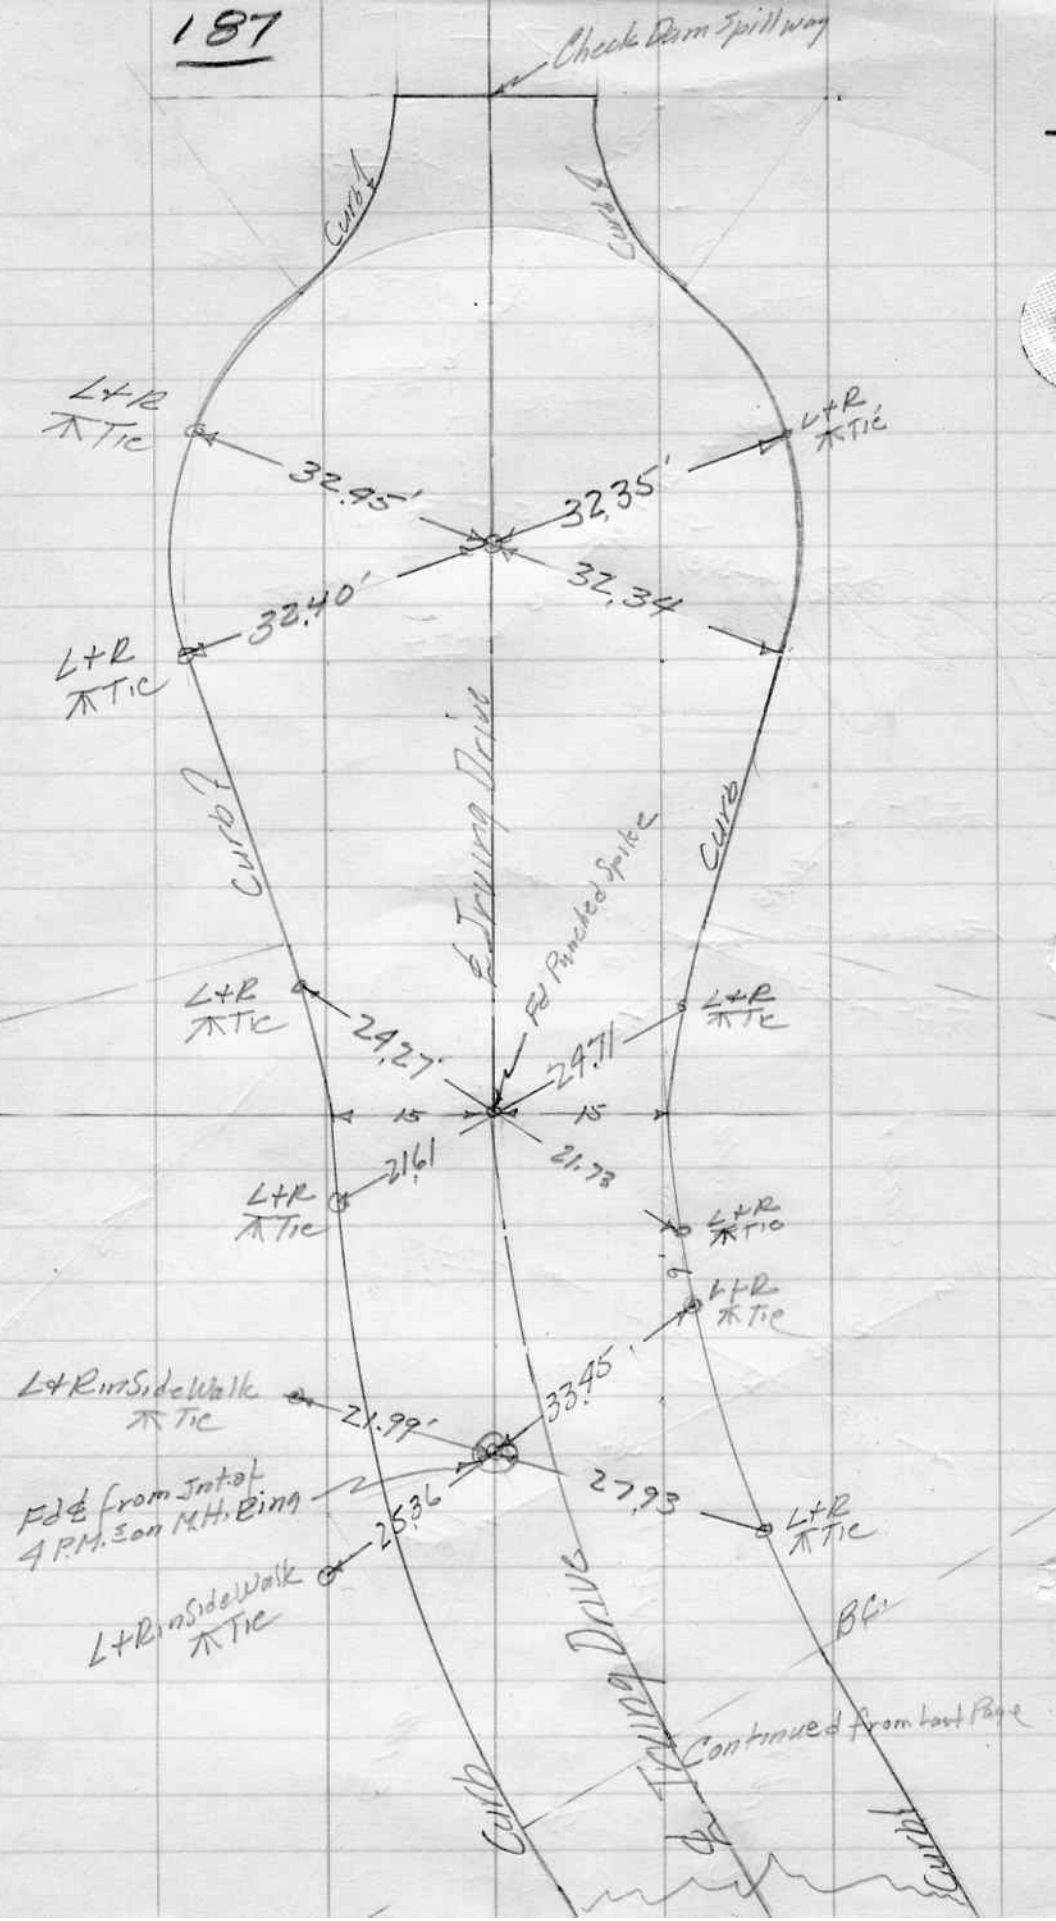 187
Check Dam Spillway
Curb
Curb
L+R
Tie
L+R
Tie
32.45'
32.35'
32.40'
32.34
L+R
Tie
℄ Irving Drive
Curb
Curb
Fd Punched Spike
L+R
Tie
L+R
Tie
24.27'
24.71
15
15
21.61
21.73
L+R
Tie
L+R
Tie
9'
L+R
Tie
33.45
L+R in SideWalk
Tie
21.99'
27.93
Fd ℄ from Int. of
4 P.M. on M.H. Ring
25.36
L+R
Tie
L+R in SideWalk
Tie
B.C.
℄ Irving Drive
Continued from Last Page
Curb
Curb